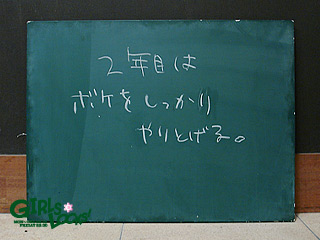 2年目は
ボケをしっかり
やりとげる。
GIRLS